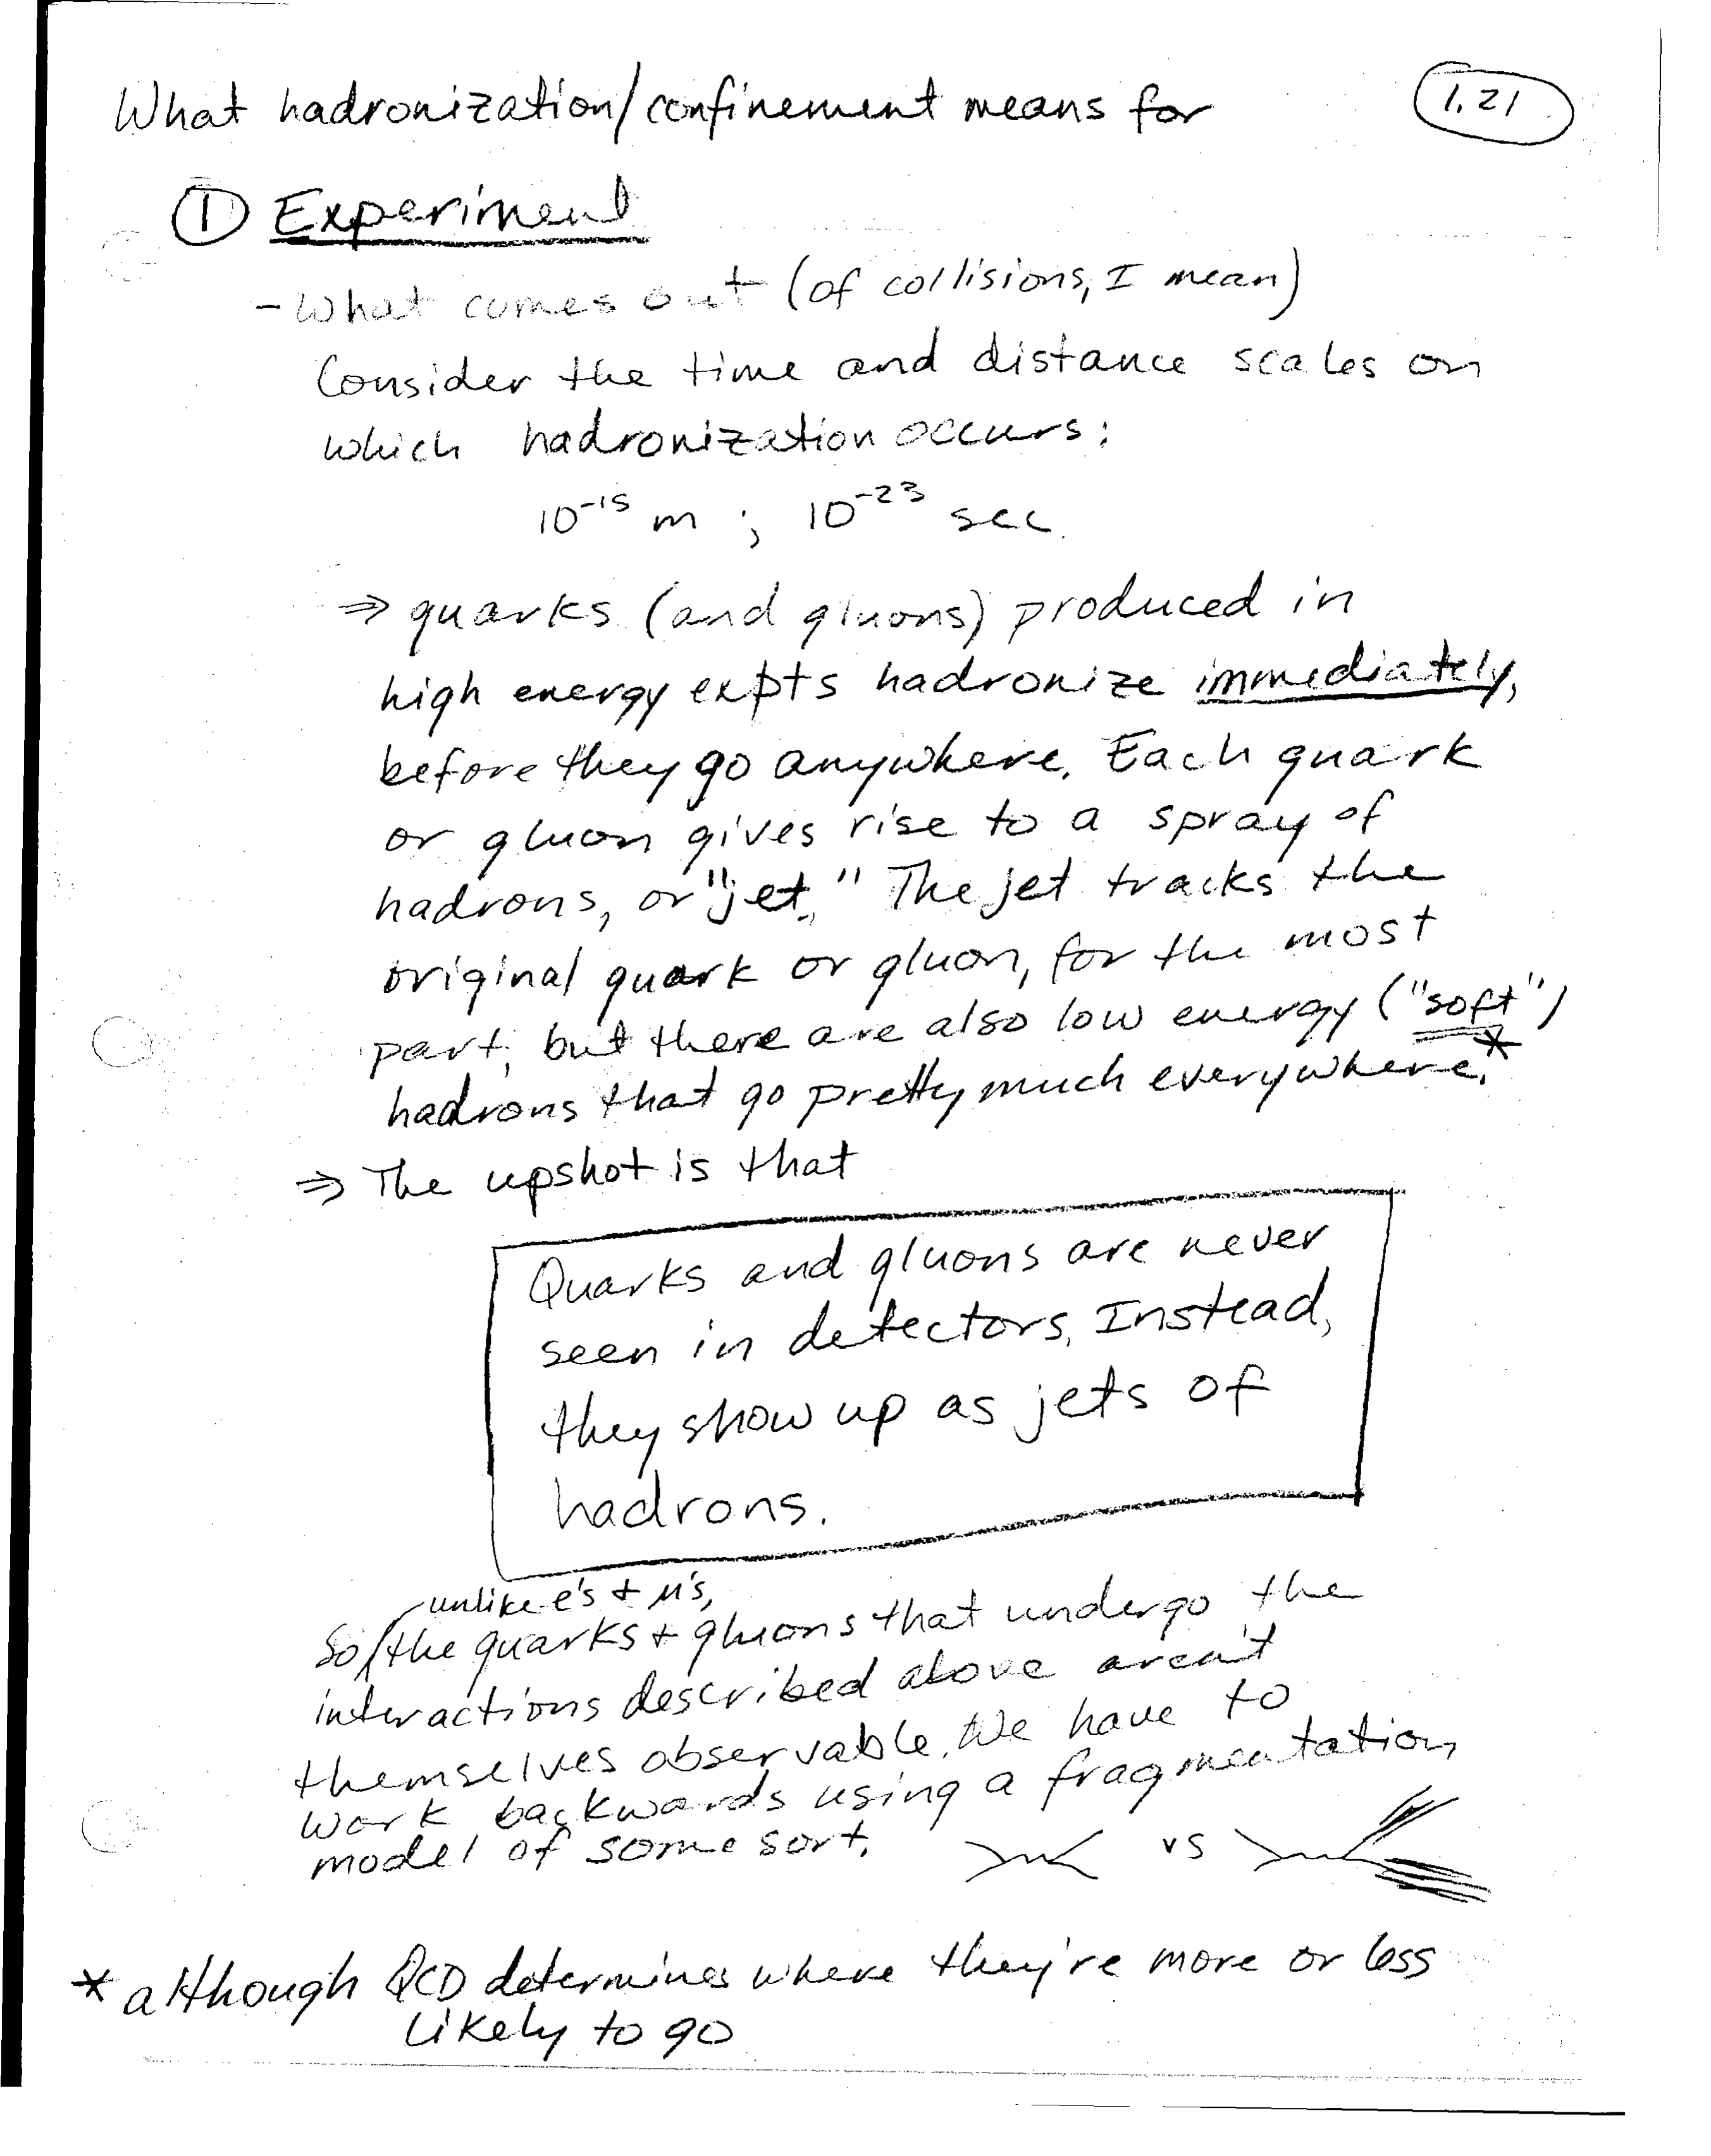 What hadronization/confinement means for
1.21
① Experiment
- What comes out (of collisions, I mean)
Consider the time and distance scales on
which hadronization occurs:
10⁻¹⁵ m ; 10⁻²³ sec.
⇒ quarks (and gluons) produced in
high energy expts hadronize immediately,
before they go anywhere. Each quark
or gluon gives rise to a spray of
hadrons, or "jet." The jet tracks the
original quark or gluon, for the most
part, but there are also low energy ("soft")
hadrons that go pretty much everywhere.*
⇒ The upshot is that
Quarks and gluons are never
seen in detectors. Instead,
they show up as jets of
hadrons.
unlike e's + μ's,
So/the quarks + gluons that undergo the
interactions described above aren't
themselves observable. We have to
work backwards using a fragmentation
model of some sort.
vs
* although QCD determines where they're more or less
likely to go